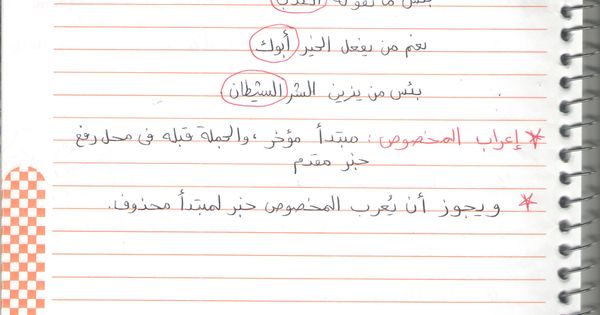 بئس ما تقوله الكذب
نعم من يفعل الخير أبوك
بئس من يزين الشر الشيطان
* إعراب المخصوص : مبتدأ مؤخر ، والجملة قبله في محل رفع
خبر مقدم
* ويجوز أن يُعرب المخصوص خبر لمبتدأ محذوف.